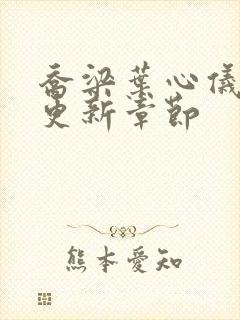 乔梁叶心仪
更新章节
熊本爱知